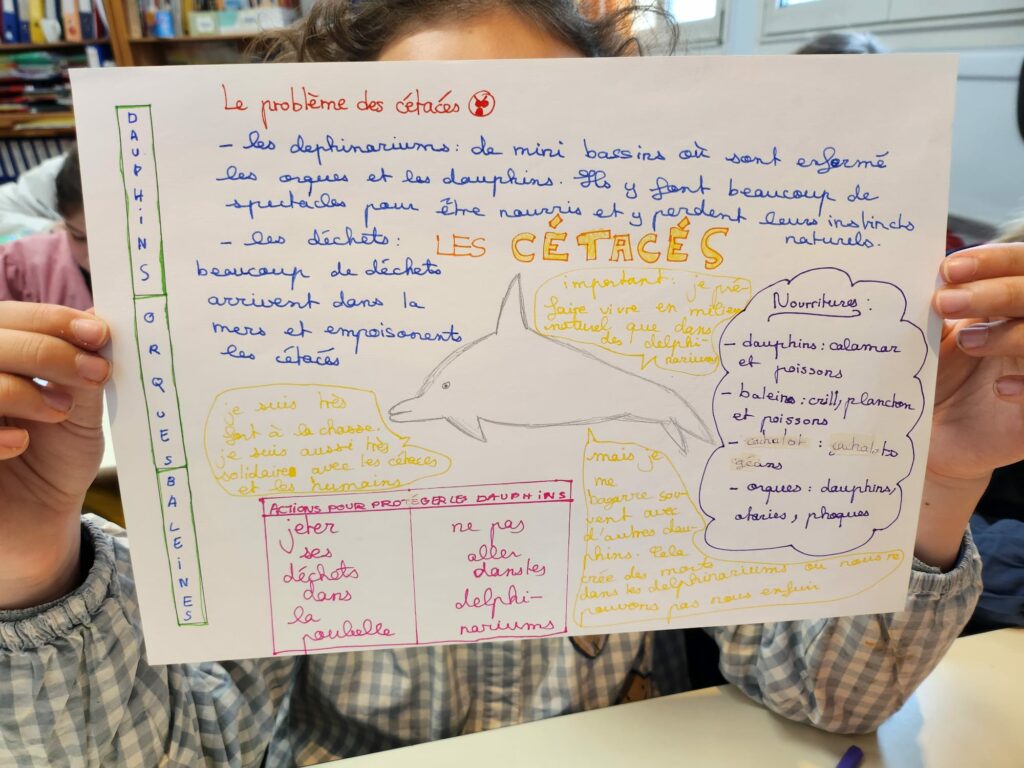 Le problème des cétacés
- les dephinariums : de mini bassins où sont enfermé
les orques et les dauphins. Ils y font beaucoup de
spectacles pour être nourris et y perdent leurs instincts
naturels.
- les déchets :
beaucoup de déchets
arrivent dans la
mers et empoisonents
les cétacés
LES CÉTACÉS
important : je pré-
faire vivre en milieu
naturel que dans
des delphi-
nariums
Nourritures :
- dauphins : calamar
et poissons
- baleins : crill, planchon
et poissons
- cachalot : cachalots
géans
- orques : dauphins,
otaries, phoques
je suis très
fort à la chasse.
je suis aussi très
solidaire avec les cétacés
et les humains
mais je
me
bagarre sou-
vent avec
d'autres dau-
phins. Cela
crée des morts
dans les delphinariums ou nous ne
pouvons pas nous enfuir
ACTIONS POUR PROTÉGER LES DAUPHINS
jeter
ses
déchets
dans
la
poubelle
ne pas
aller
dans les
delphi-
nariums
DAUPHINS
ORQUES
BALEINES